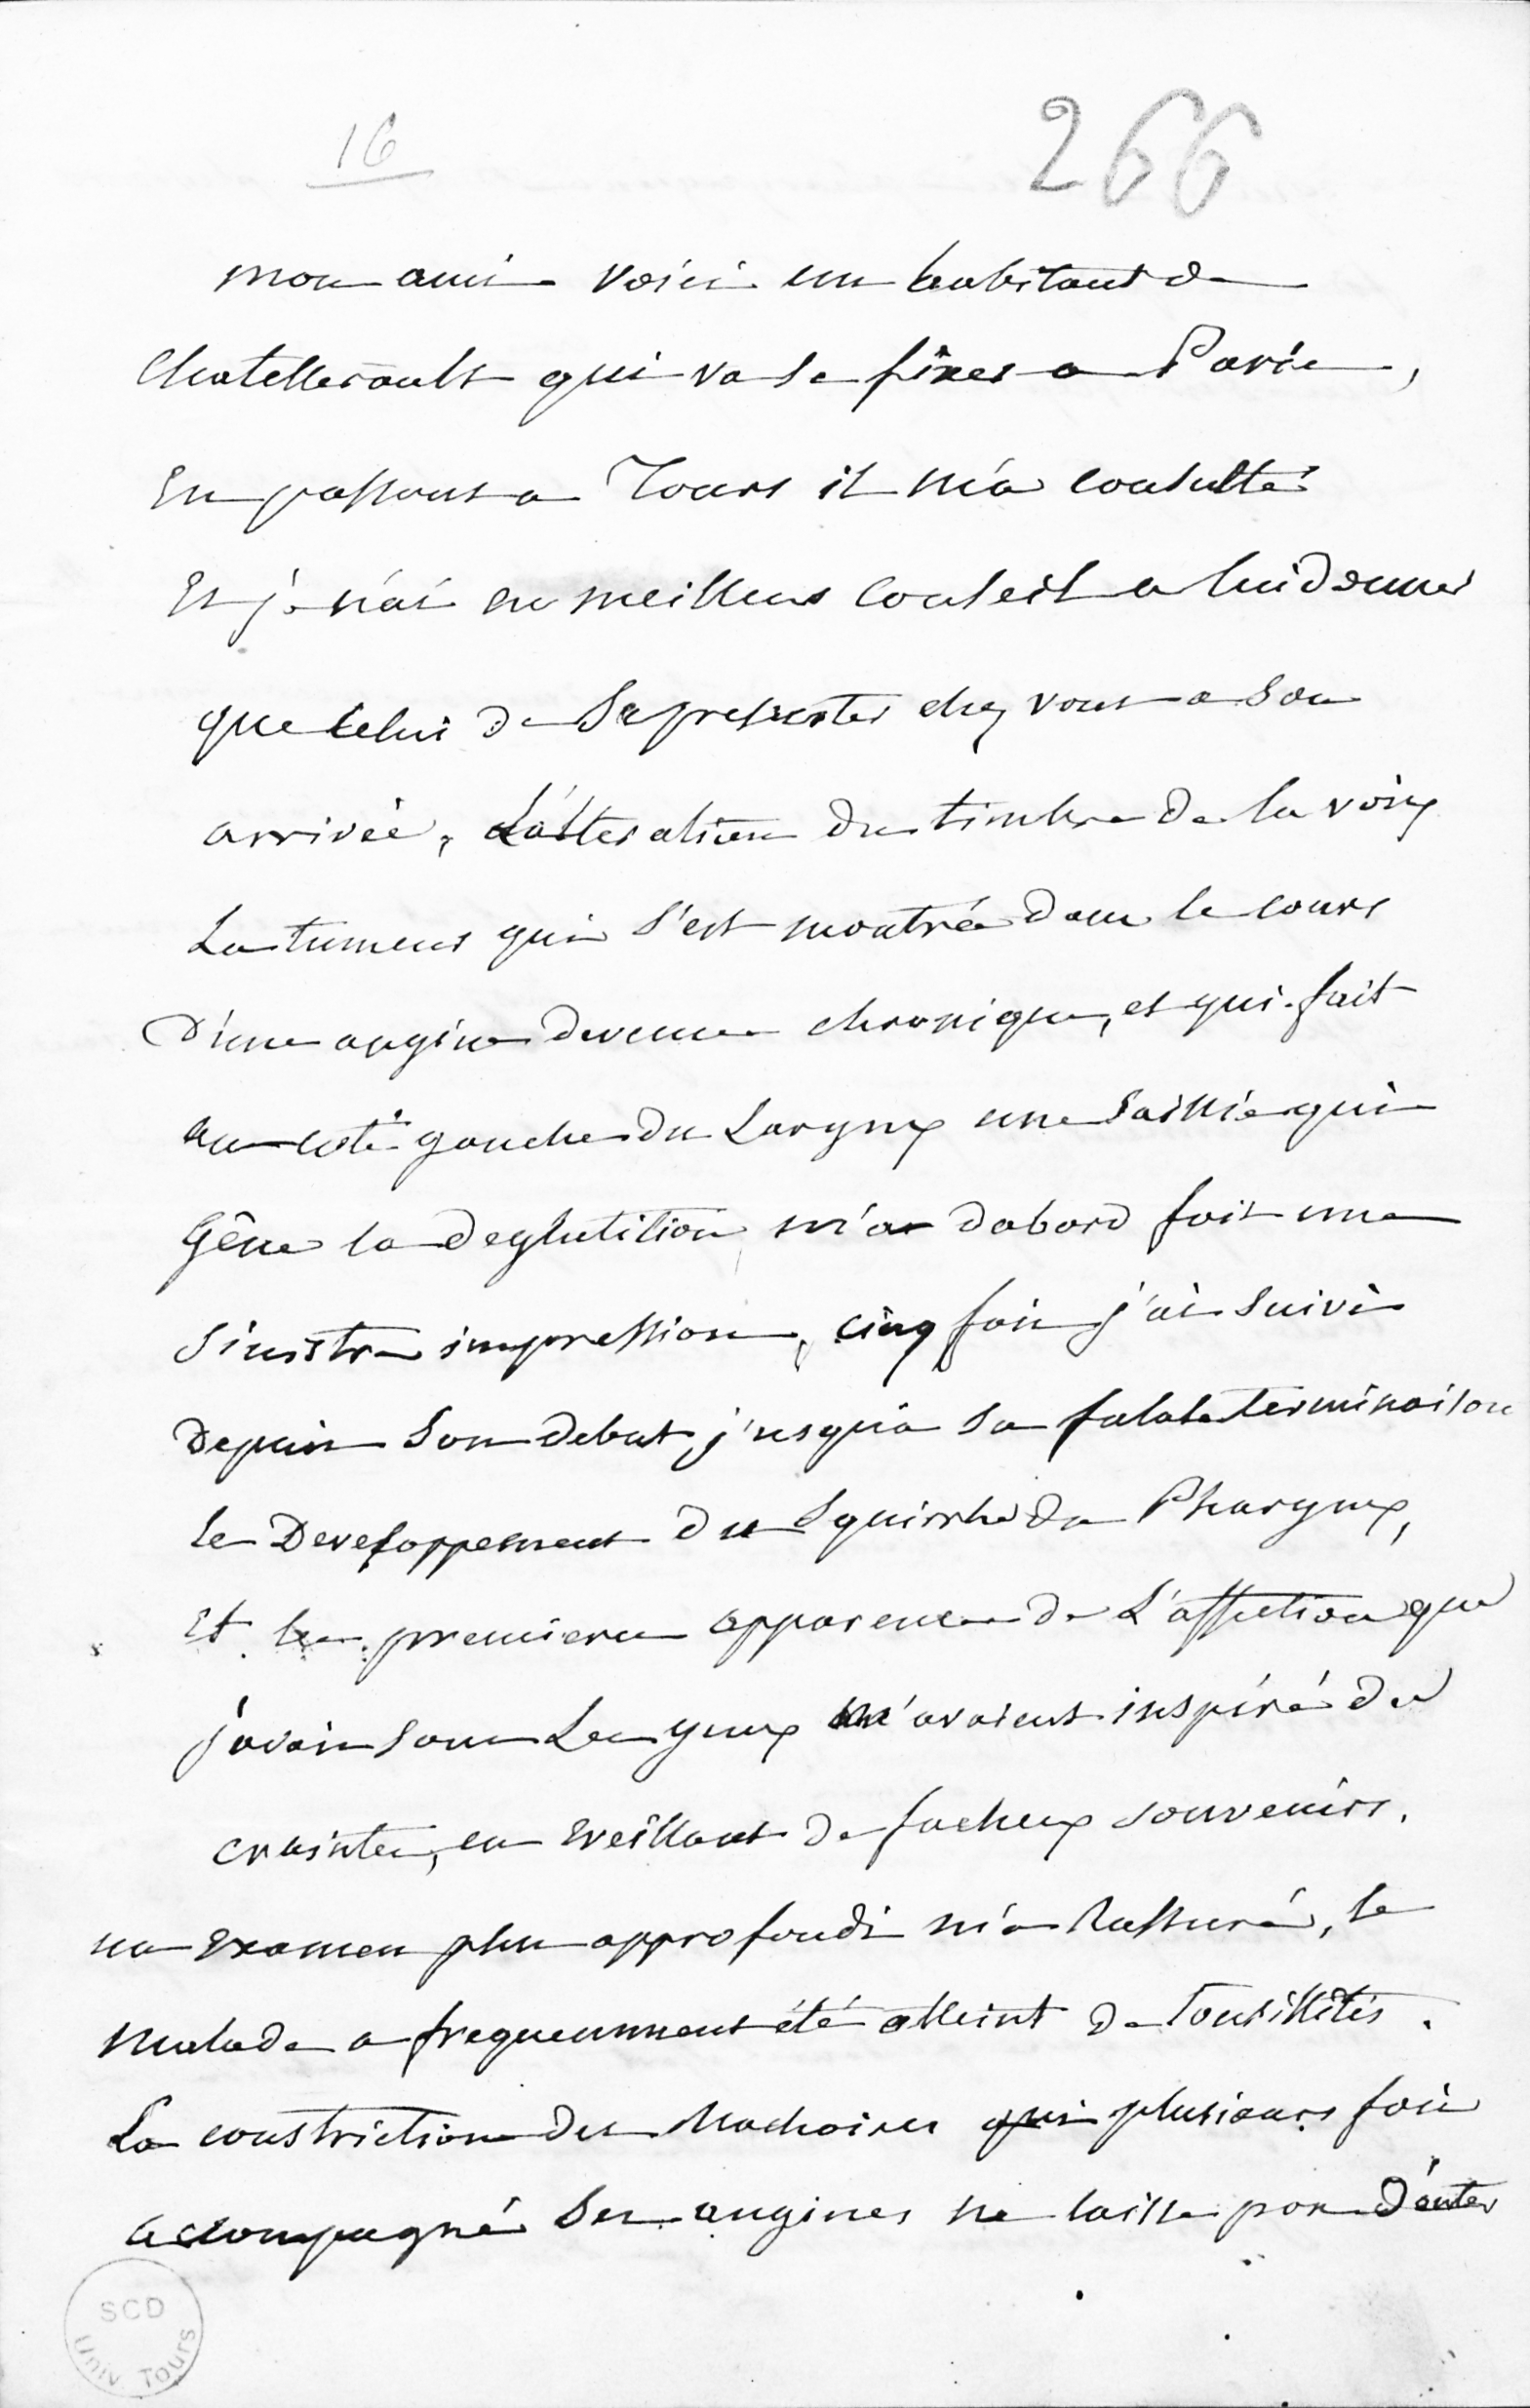 16
266
mon ami voici un habitant de
Chatellerault qui va se fixer a Paris,
En passant a Tours il m'a consulté
Et je n'ai eu meilleur conseil a lui donner
que celui de se presenter chez vous a son
arrivée, L'alteration du timbre de la voix
La tumeur qui s'est montrée dans le cours
D'une angine devenue chronique, et qui fait
au coté gauche du Larynx une saillie qui
Gêne la deglutition m'a dabord fait une
sinistre impression, cinq fois j'ai suivi
Depuis son debut j'usqu'a sa fatale terminaison
le Developpement du squirrhe du Pharynx,
Et les premieres apparences de L'affection que
j'avais sous Les yeux m'avaient inspiré des
craintes, en eveillant de facheux souvenirs.
un examen plus approfondi m'a Rassuré, le
malade a frequemment été atteint de Tonsillites.
La constriction des machoires qui plusieurs fois
accompagné ses angines ne laisse pas douter
SCD
Univ Tours